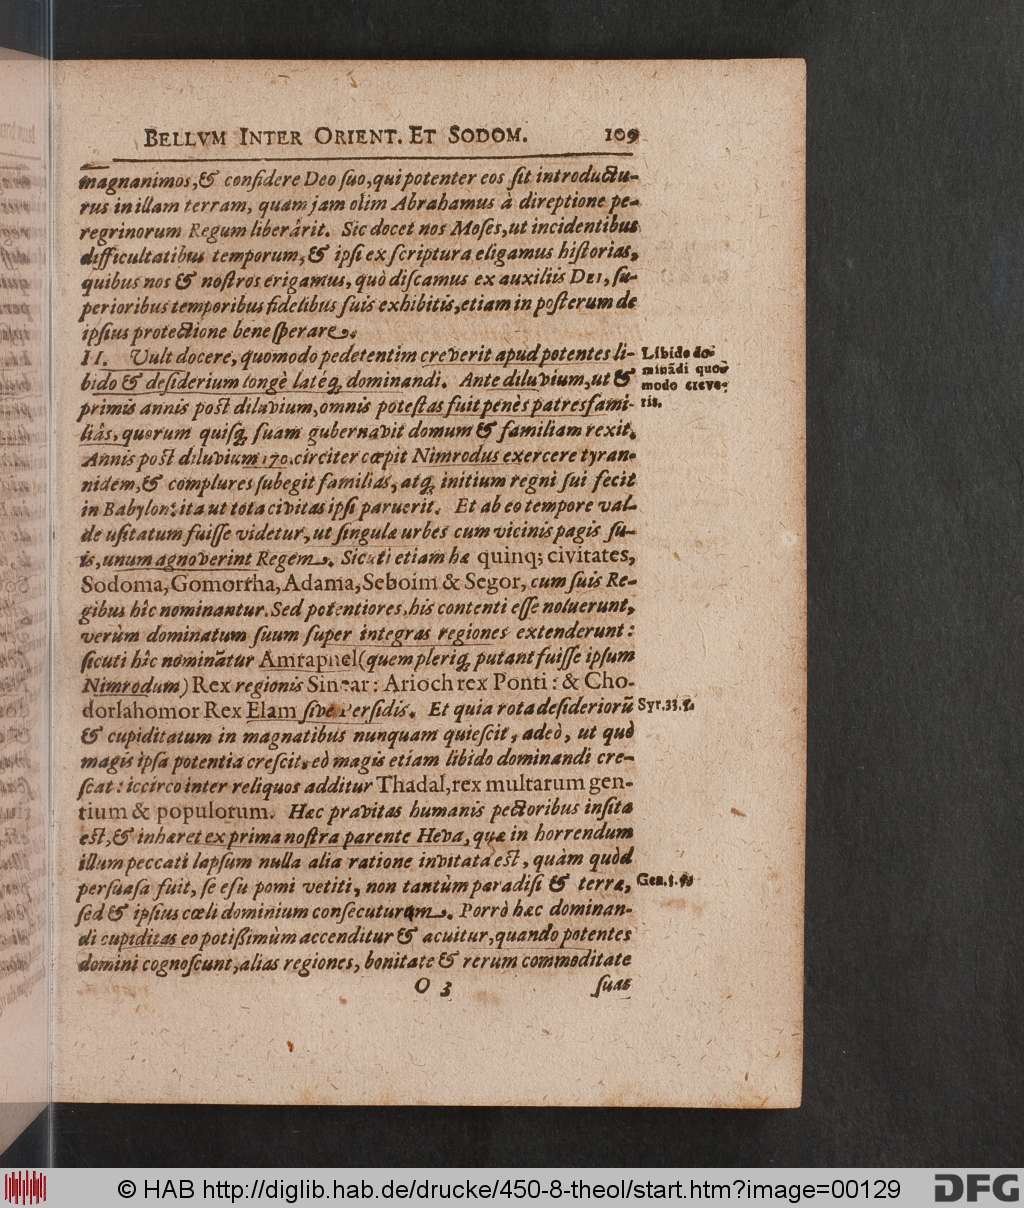 BELLVM INTER ORIENT. ET SODOM. 109
magnanimos, & confidere Deo suo, qui potenter eos sit introductu-
rus in illam terram, quam jam olim Abrahamus à direptione pe-
regrinorum Regum liberârit. Sic docet nos Moses, ut incidentibus
difficultatibus temporum, & ipsi ex scriptura eligamus historias,
quibus nos & nostros erigamus, quò discamus ex auxiliis DEI, su-
perioribus temporibus fidelibus suis exhibitis, etiam in posterum de
ipsius protectione bene sperare.
II. Vult docere, quomodo pedetentim creverit apud potentes li-
bido & desiderium longè latéq; dominandi. Ante diluvium, ut &
primis annis post diluvium, omnis potestas fuit penès patresfami-
liâs, quorum quisq; suam gubernavit domum & familiam rexit.
Annis post diluvium 170. circiter cœpit Nimrodus exercere tyran-
nidem, & complures subegit familias, atq; initium regni sui fecit
in Babylon: ita ut tota civitas ipsi paruerit. Et ab eo tempore val-
de usitatum fuisse videtur, ut singulæ urbes cum vicinis pagis su-
is, unum agnoverint Regem. Sicuti etiam hæ quinq; civitates,
Sodoma, Gomorrha, Adama, Seboim & Segor, cum suis Re-
gibus hîc nominantur. Sed potentiores, his contenti esse noluerunt,
verùm dominatum suum super integras regiones extenderunt:
sicuti hîc nominãtur Amraphel (quem pleriq; putant fuisse ipsum
Nimrodum) Rex regionis Sinear: Arioch rex Ponti: & Cho-
dorlahomor Rex Elam sive Persidis. Et quia rota desideriorũ
& cupiditatum in magnatibus nunquam quiescit, adeò, ut quò
magis ipsa potentia crescit, eò magis etiam libido dominandi cre-
scat: iccirco inter reliquos additur Thadal, rex multarum gen-
tium & populorum. Hæc pravitas humanis pectoribus insita
est, & inhæret ex prima nostra parente Heva, quæ in horrendum
illum peccati lapsum nulla alia ratione invitata est, quàm quòd
persuasa fuit, se esu pomi vetiti, non tantùm paradisi & terræ,
sed & ipsius cœli dominium consecuturam. Porrò hæc dominan-
di cupiditas eo potißimùm accenditur & acuitur, quando potentes
domini cognoscunt, alias regiones, bonitate & rerum commoditate
O 3 suas
Libido do-
minãdi quo-
modo creve-
rit.
Syr.33.5.
Gen.3.5
© HAB http://diglib.hab.de/drucke/450-8-theol/start.htm?image=00129
DFG